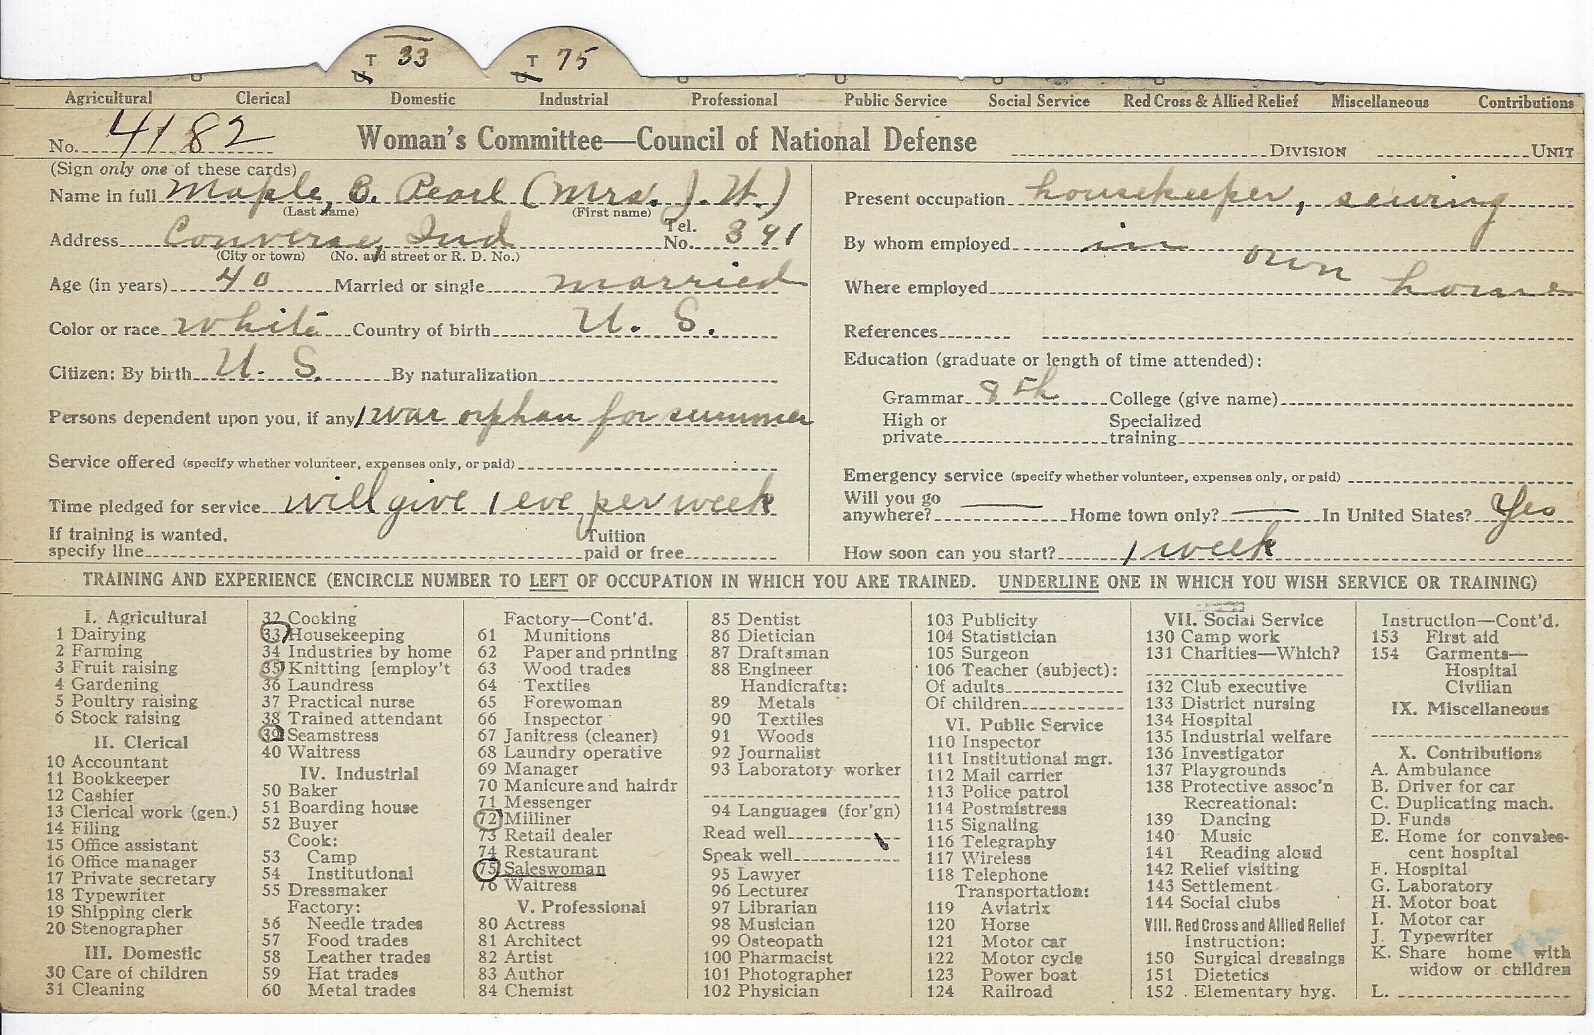 T 33 T 75
Agricultural Clerical Domestic Industrial Professional Public Service Social Service Red Cross & Allied Relief Miscellaneous Contributions
No. 4182 Woman's Committee—Council of National Defense DIVISION UNIT
(Sign only one of these cards)
Name in full Maple, C. Pearl (Mrs. J. W.)
(Last name) (First name)
Address Converse, Ind Tel. No. 391
(City or town) (No. and street or R. D. No.)
Age (in years) 40 Married or single married
Color or race white Country of birth U. S.
Citizen: By birth U. S. By naturalization
Persons dependent upon you, if any 1 war orphan for summer
Service offered (specify whether volunteer, expenses only, or paid)
Time pledged for service will give 1 eve per week
If training is wanted, Tuition
specify line paid or free
Present occupation housekeeper, sewing
By whom employed in own
Where employed home
References
Education (graduate or length of time attended):
Grammar 8th College (give name)
High or Specialized
private training
Emergency service (specify whether volunteer, expenses only, or paid)
Will you go
anywhere? — Home town only? — In United States? Yes
How soon can you start? 1 week
TRAINING AND EXPERIENCE (ENCIRCLE NUMBER TO LEFT OF OCCUPATION IN WHICH YOU ARE TRAINED. UNDERLINE ONE IN WHICH YOU WISH SERVICE OR TRAINING)
I. Agricultural
1 Dairying
2 Farming
3 Fruit raising
4 Gardening
5 Poultry raising
6 Stock raising
II. Clerical
10 Accountant
11 Bookkeeper
12 Cashier
13 Clerical work (gen.)
14 Filing
15 Office assistant
16 Office manager
17 Private secretary
18 Typewriter
19 Shipping clerk
20 Stenographer
III. Domestic
30 Care of children
31 Cleaning
32 Cooking
33 Housekeeping
34 Industries by home
35 Knitting [employ't
36 Laundress
37 Practical nurse
38 Trained attendant
39 Seamstress
40 Waitress
IV. Industrial
50 Baker
51 Boarding house
52 Buyer
Cook:
53 Camp
54 Institutional
55 Dressmaker
Factory:
56 Needle trades
57 Food trades
58 Leather trades
59 Hat trades
60 Metal trades
Factory—Cont'd.
61 Munitions
62 Paper and printing
63 Wood trades
64 Textiles
65 Forewoman
66 Inspector
67 Janitress (cleaner)
68 Laundry operative
69 Manager
70 Manicure and hairdr
71 Messenger
72 Milliner
73 Retail dealer
74 Restaurant
75 Saleswoman
76 Waitress
V. Professional
80 Actress
81 Architect
82 Artist
83 Author
84 Chemist
85 Dentist
86 Dietician
87 Draftsman
88 Engineer
Handicrafts:
89 Metals
90 Textiles
91 Woods
92 Journalist
93 Laboratory worker
94 Languages (for'gn)
Read well
Speak well
95 Lawyer
96 Lecturer
97 Librarian
98 Musician
99 Osteopath
100 Pharmacist
101 Photographer
102 Physician
103 Publicity
104 Statistician
105 Surgeon
106 Teacher (subject):
Of adults
Of children
VI. Public Service
110 Inspector
111 Institutional mgr.
112 Mail carrier
113 Police patrol
114 Postmistress
115 Signaling
116 Telegraphy
117 Wireless
118 Telephone
Transportation:
119 Aviatrix
120 Horse
121 Motor car
122 Motor cycle
123 Power boat
124 Railroad
VII. Social Service
130 Camp work
131 Charities—Which?
132 Club executive
133 District nursing
134 Hospital
135 Industrial welfare
136 Investigator
137 Playgrounds
138 Protective assoc'n
Recreational:
139 Dancing
140 Music
141 Reading aloud
142 Relief visiting
143 Settlement
144 Social clubs
VIII. Red Cross and Allied Relief
Instruction:
150 Surgical dressings
151 Dietetics
152 . Elementary hyg.
Instruction—Cont'd.
153 First aid
154 Garments—
Hospital
Civilian
IX. Miscellaneous
X. Contributions
A. Ambulance
B. Driver for car
C. Duplicating mach.
D. Funds
E. Home for convales-
cent hospital
F. Hospital
G. Laboratory
H. Motor boat
I. Motor car
J. Typewriter
K. Share home with
widow or children
L.